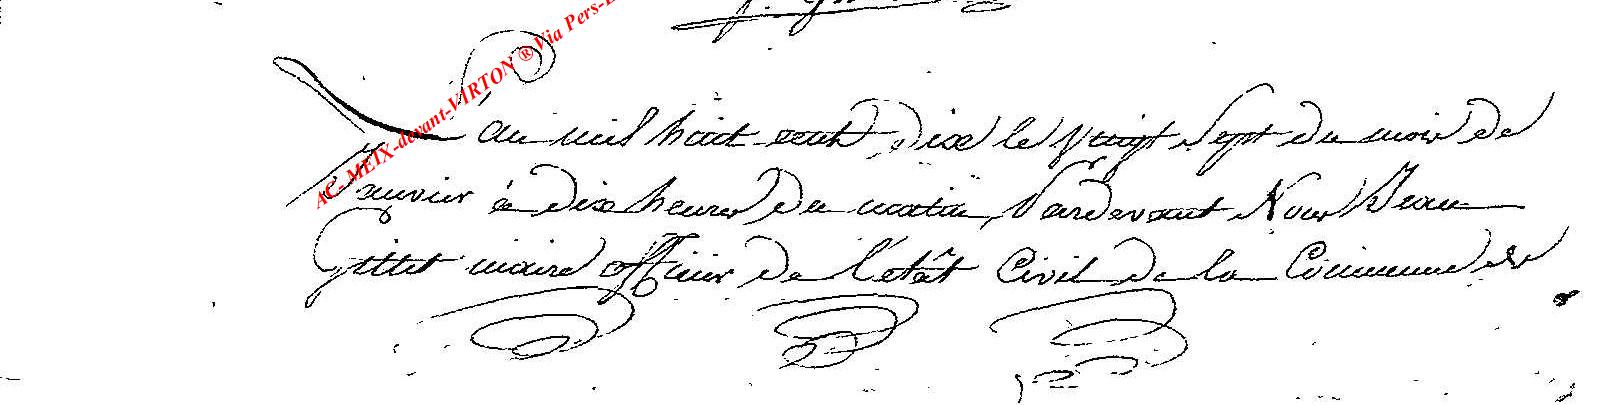 AC-MEIX-devant-VIRTON ® Via Pers-
L'an mil huit cent dix le Vingt Sept du mois de
Janvier à dix heures du matin, Pardevant Nous Jean
Gillet maire officier de l'etât Civil de la Commune de